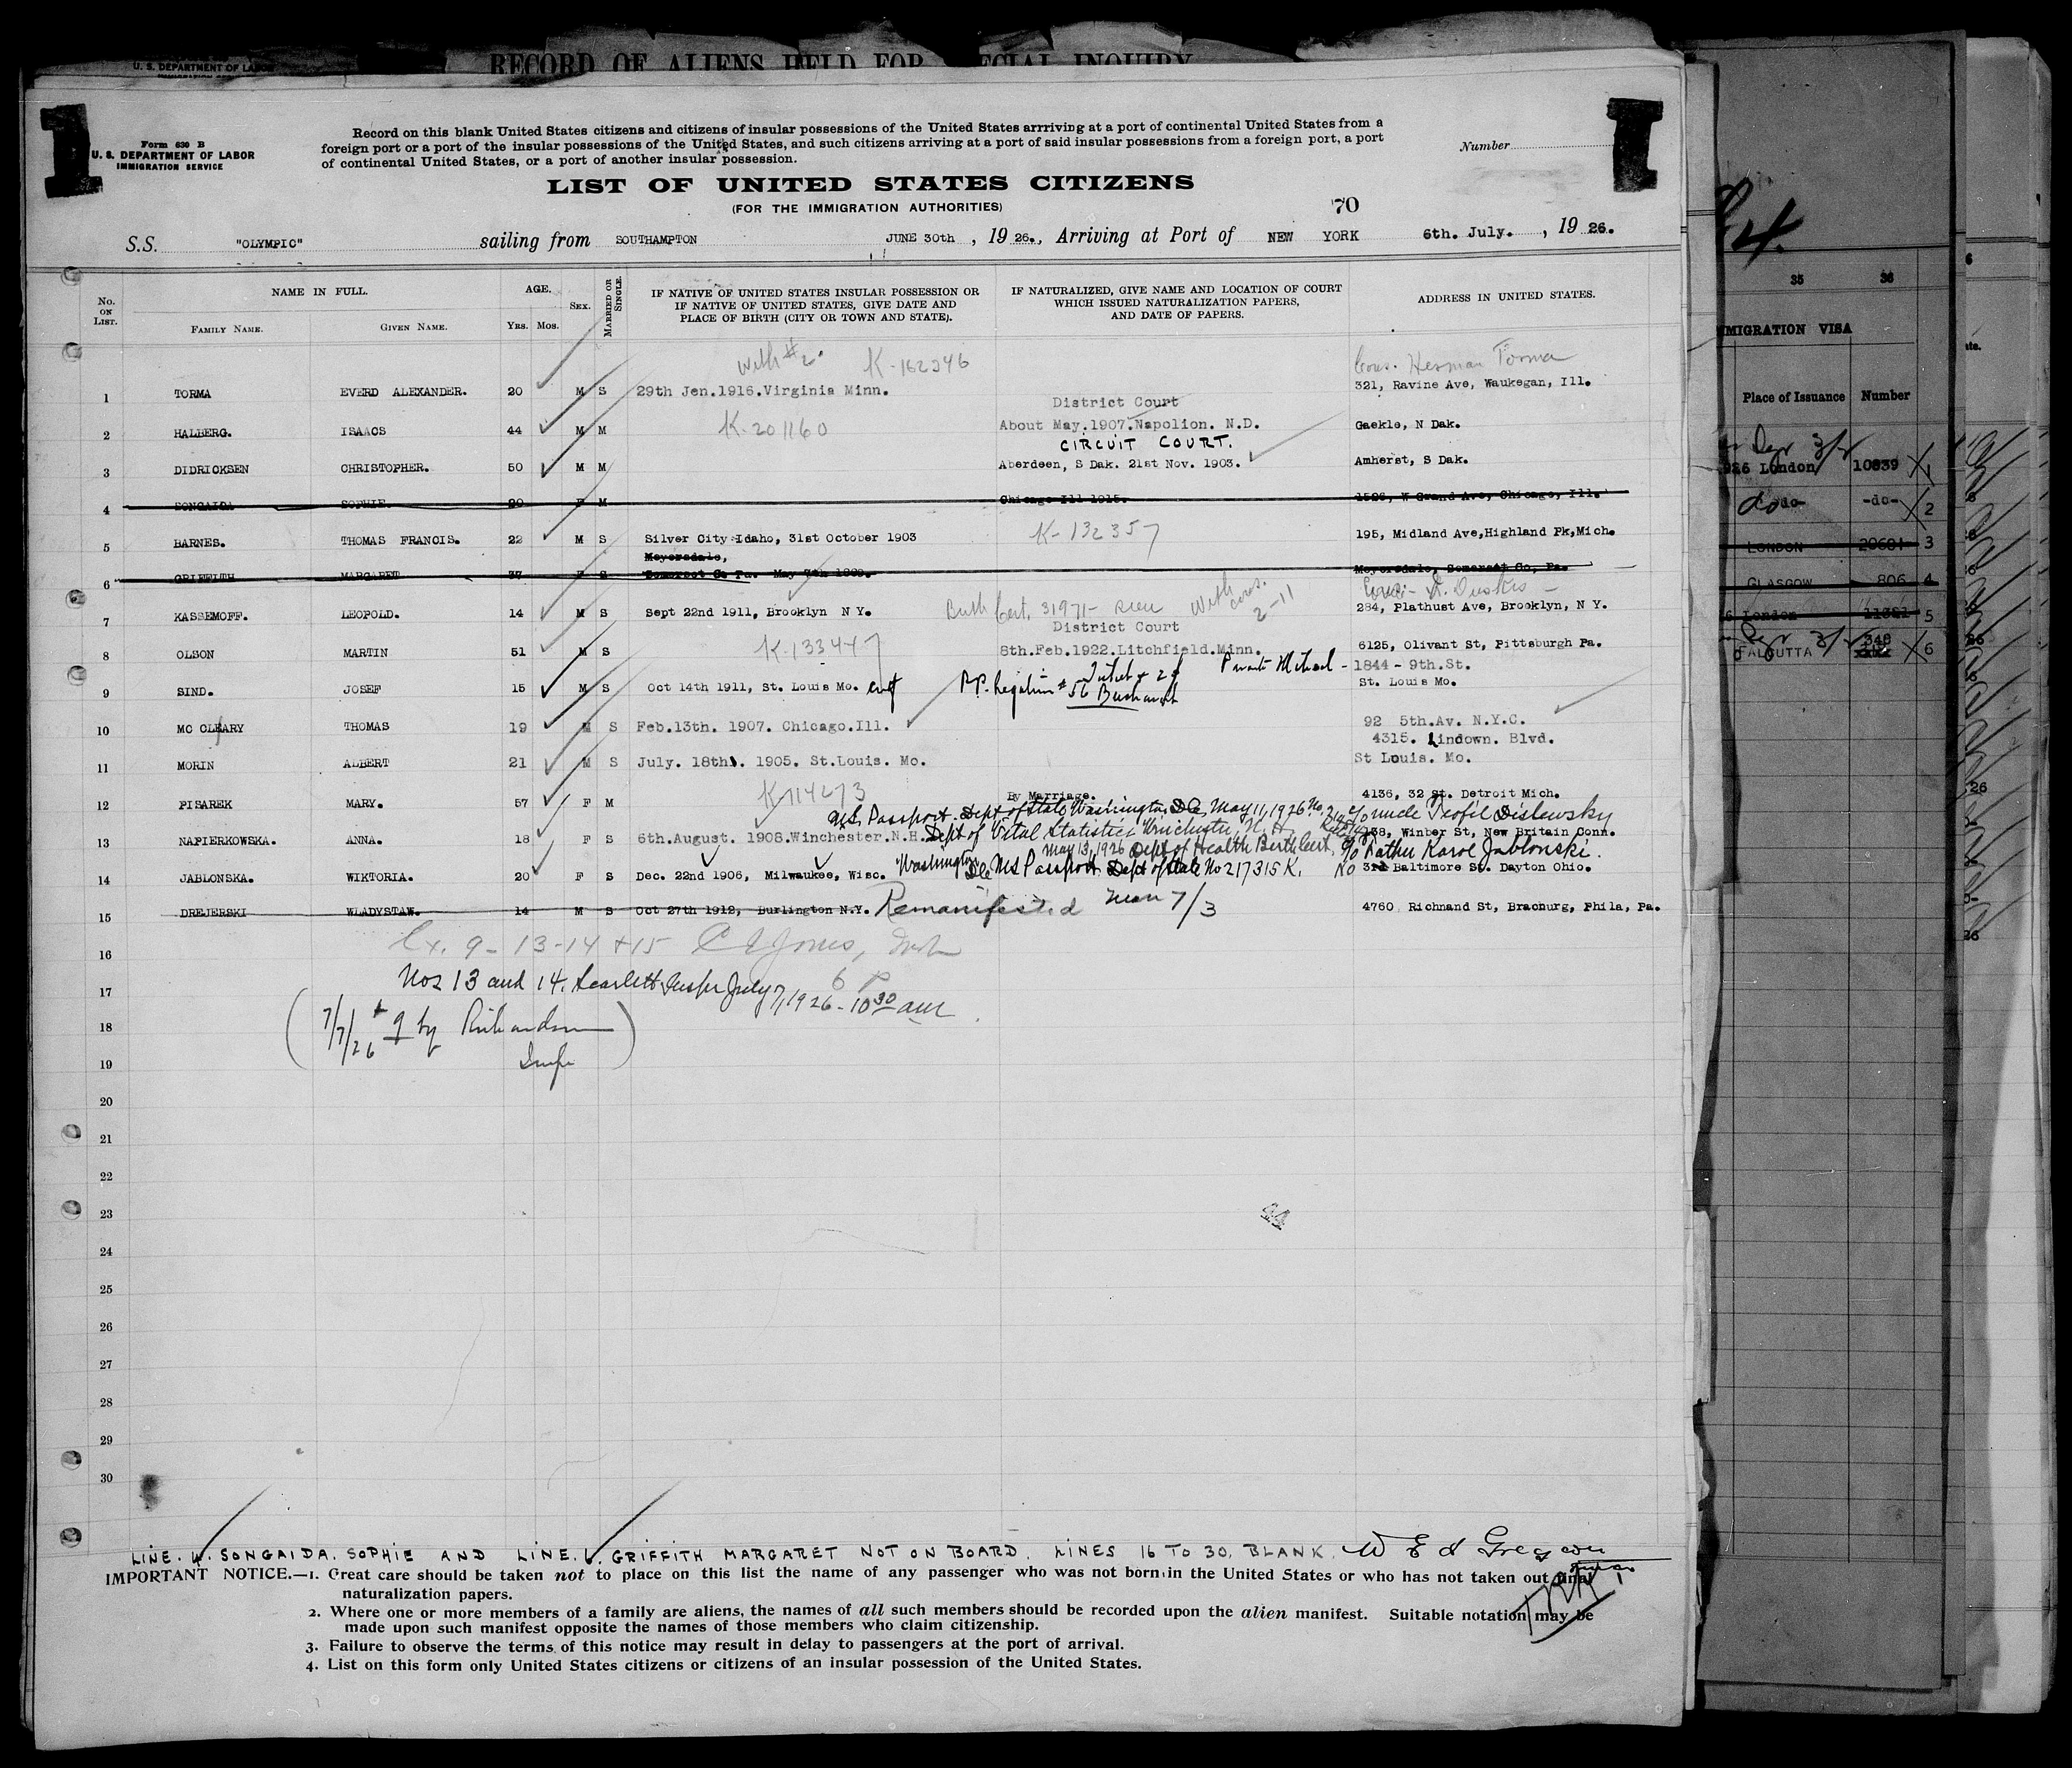 U. S. DEPARTMENT OF LABOR
RECORD OF ALIENS HELD FOR SPECIAL INQUIRY
I
I
Form 630 B
U. S. DEPARTMENT OF LABOR
IMMIGRATION SERVICE
Record on this blank United States citizens and citizens of insular possessions of the United States arrriving at a port of continental United States from a
foreign port or a port of the insular possessions of the United States, and such citizens arriving at a port of said insular possessions from a foreign port, a port
of continental United States, or a port of another insular possession.
Number
LIST OF UNITED STATES CITIZENS
(FOR THE IMMIGRATION AUTHORITIES)
70
S.S. "OLYMPIC" sailing from SOUTHAMPTON JUNE 30th , 19 26., Arriving at Port of NEW YORK 6th. July. , 19 26.
No. ON LIST.
NAME IN FULL.
FAMILY NAME. GIVEN NAME.
AGE.
Yrs. Mos.
SEX.
MARRIED OR SINGLE.
IF NATIVE OF UNITED STATES INSULAR POSSESSION OR
IF NATIVE OF UNITED STATES, GIVE DATE AND
PLACE OF BIRTH (CITY OR TOWN AND STATE).
IF NATURALIZED, GIVE NAME AND LOCATION OF COURT
WHICH ISSUED NATURALIZATION PAPERS,
AND DATE OF PAPERS.
ADDRESS IN UNITED STATES.
With #2. K-162346 Cous. Herman Torma
1 TORMA EVERD ALEXANDER. 20 M S 29th Jen.1916.Virginia Minn. 321, Ravine Ave, Waukegan, Ill.
District Court
2 HALBERG. ISAACS 44 M M K-201160 About May.1907.Napolion. N.D. Gaekle, N Dak.
CIRCUIT COURT.
3 DIDRICKSEN CHRISTOPHER. 50 M M Aberdeen, S Dak. 21st Nov. 1903. Amherst, S Dak.
4 SONGAIDA SOPHIE. 20 F M Chicago Ill 1915. 1526, W Grand Ave, Chicago, Ill.
5 BARNES. THOMAS FRANCIS. 22 M S Silver City Idaho, 31st October 1903 K-132357 195, Midland Ave,Highland Pk,Mich.
Meyersdale,
6 GRIFFITH MARGARET 37 F S Somerset Co Pa. May 7th Meyersdale, Somerset Co, Pa.
7 KASSEMOFF. LEOPOLD. 14 M S Sept 22nd 1911, Brooklyn N Y. Birth Cert. 31971- seen With cous. 2-11 284, Plathust Ave, Brooklyn, N Y.
District Court
8 OLSON MARTIN 51 M S K-133447 8th.Feb.1922.Litchfield.Minn. 6125, Olivant St, Pittsburgh Pa.
Michael - 1844 - 9th.St.
9 SIND. JOSEF 15 M S Oct 14th 1911, St. Louis Mo. P.P. Legation #56 Bucharest St. Louis Mo.
10 MC CLEARY THOMAS 19 M S Feb.13th. 1907. Chicago.Ill. 92 5th.Av. N.Y.C.
4315. Lindown. Blvd.
11 MORIN ALBERT 21 M S July. 18th. 1905. St.Louis. Mo. St Louis. Mo.
12 PISAREK MARY. 57 F M K114273 By Marriage. 4136, 32 St. Detroit Mich.
U.S. Passport. Dept of State Washington, D.C. May 11, 1926 No c/o uncle Teofil Dislewsky
13 NAPIERKOWSKA. ANNA. 18 F S 6th.August. 1908.Winchester.N.H. Dept of Vital Statistics Winchester, N.H. 138, Winber St, New Britain Conn.
May 13, 1926 Dept of Health Birth Cert. c/o Father Karol Jablonski.
14 JABLONSKA. WIKTORIA. 20 F S Dec. 22nd 1906, Milwaukee, Wisc. Washington DC US Passport Dept of State No 217315 K. 3rd Baltimore St. Dayton Ohio.
15 DREJERSKI WLADYSTAW. 14 M S Oct 27th 1912, Burlington N.Y. Remanifested Man 7/3 4760 Richnand St, Bracburg, Phila, Pa.
16 Ex. 9-13-14 +15 C E Jones, Insp
17 Nos 13 and 14. Scarlett Inspr July 7, 1926 - 10 30 am
18 (7/7/26 + 9 by Richardson
19 Insp)
20
21
22
23
24
25
26
27
28
29
30
LINE. 4. SONGAIDA. SOPHIE AND LINE. 6. GRIFFITH MARGARET NOT ON BOARD. LINES 16 TO 30. BLANK.
IMPORTANT NOTICE.—1. Great care should be taken not to place on this list the name of any passenger who was not born in the United States or who has not taken out final
naturalization papers.
2. Where one or more members of a family are aliens, the names of all such members should be recorded upon the alien manifest. Suitable notation may be
made upon such manifest opposite the names of those members who claim citizenship.
3. Failure to observe the terms of this notice may result in delay to passengers at the port of arrival.
4. List on this form only United States citizens or citizens of an insular possession of the United States.
35 36
MIGRATION VISA
Place of Issuance Number
926 London 10839 1
do -do- 2
LONDON 20681 3
GLASGOW 806 4
6 London 11321 5
348
CALCUTTA 6